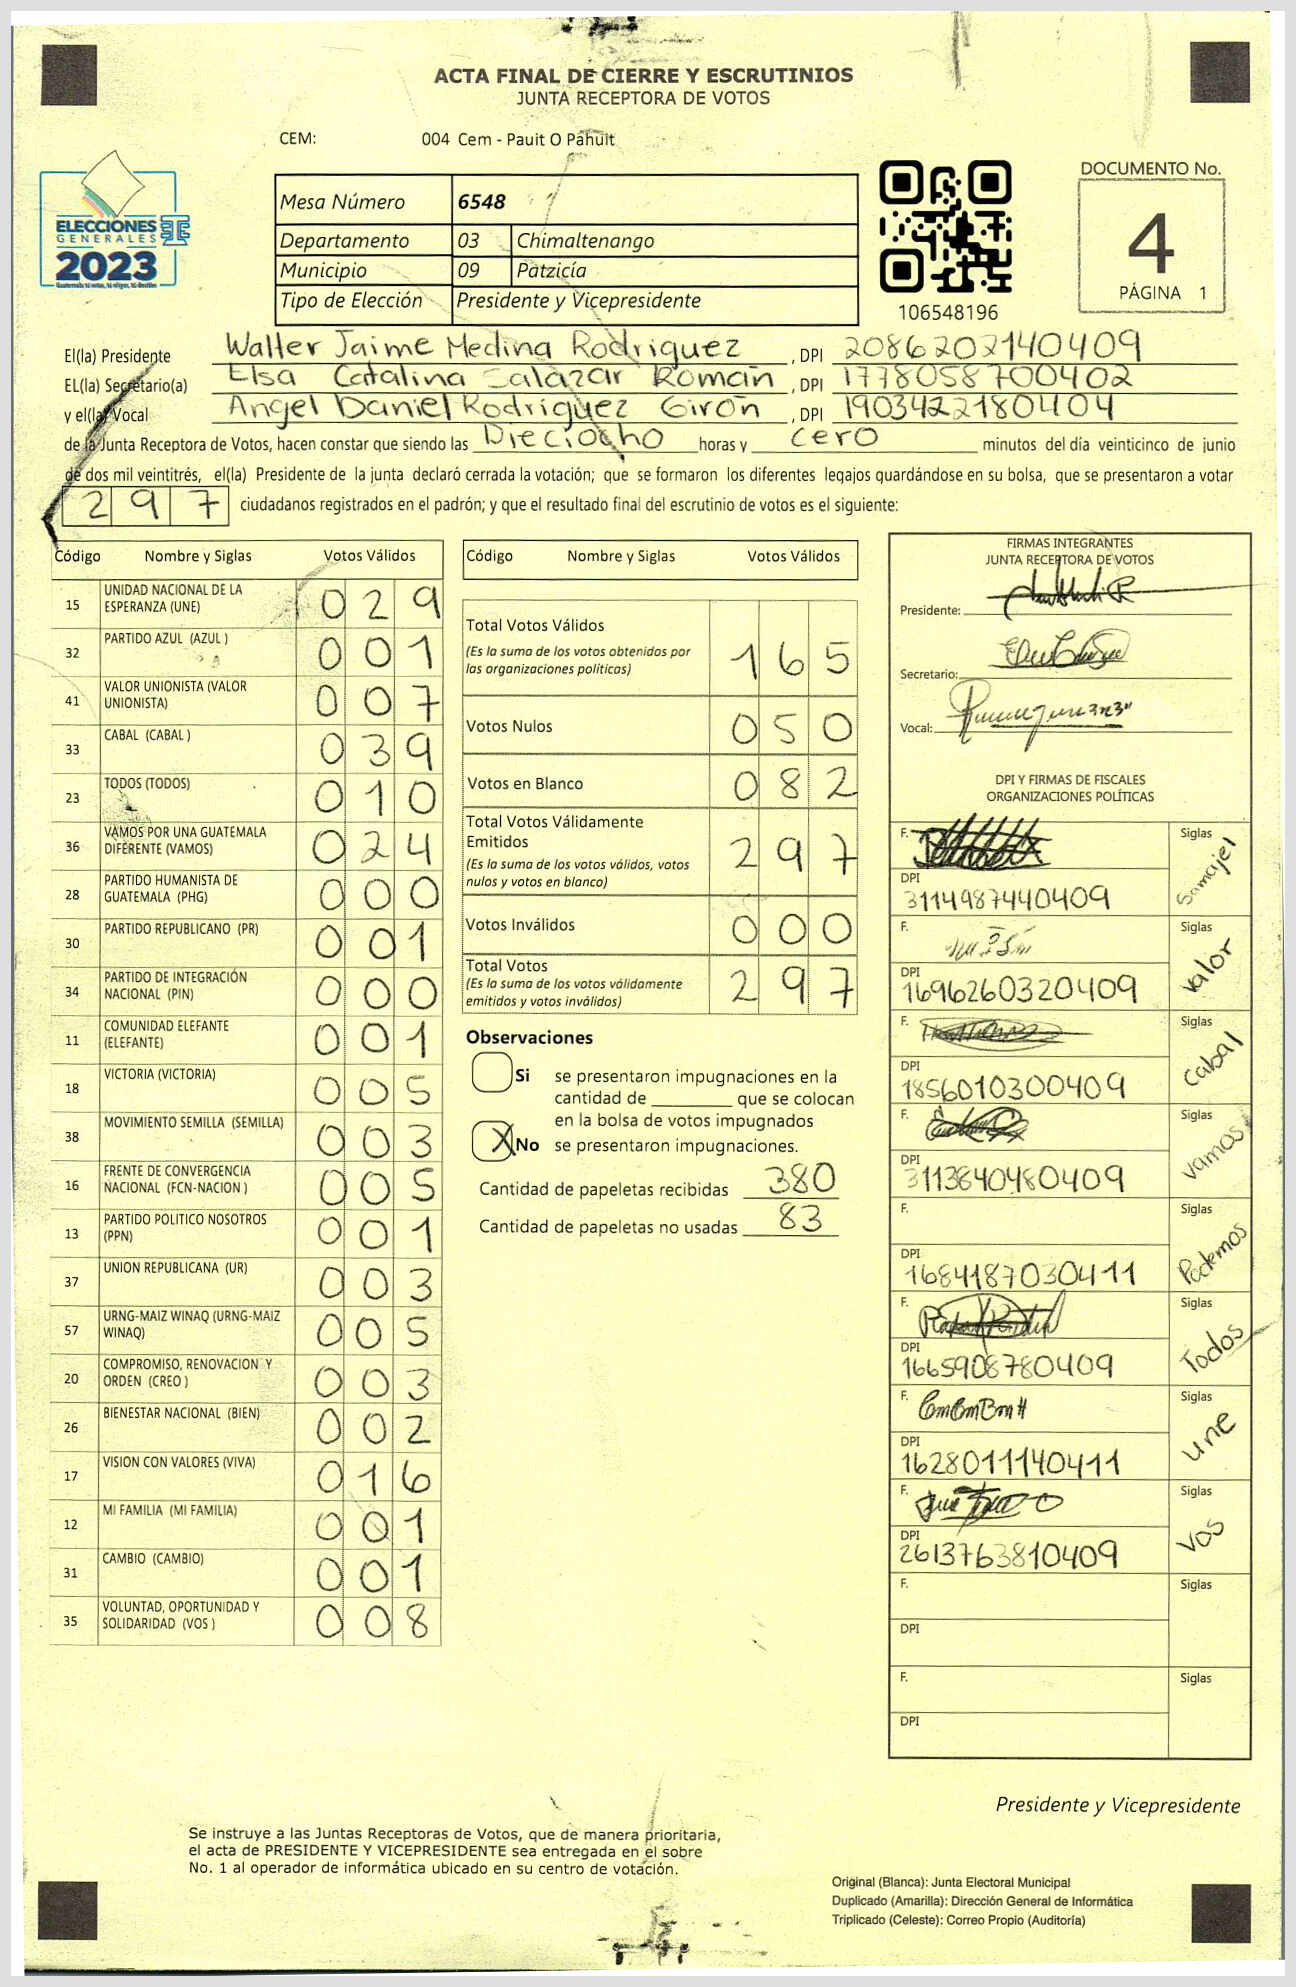 ACTA FINAL DE CIERRE Y ESCRUTINIOS
JUNTA RECEPTORA DE VOTOS
CEM: 004 Cem - Pauit O Pahuit
ELECCIONES
GENERALES
2023
Mesa Número 6548
Departamento 03 Chimaltenango
Municipio 09 Patzicía
Tipo de Elección Presidente y Vicepresidente
106548196
DOCUMENTO No.
4
PÁGINA 1
El(la) Presidente Walter Jaime Medina Rodriguez , DPI 2086202140409
EL(la) Secretario(a) Elsa Catalina Salazar Román , DPI 1778058700402
y el(la) Vocal Angel Daniel Rodríguez Girón , DPI 1903422180404
de la Junta Receptora de Votos, hacen constar que siendo las Dieciocho horas y cero minutos del día veinticinco de junio
de dos mil veintitrés, el(la) Presidente de la junta declaró cerrada la votación; que se formaron los diferentes legajos guardándose en su bolsa, que se presentaron a votar
297 ciudadanos registrados en el padrón; y que el resultado final del escrutinio de votos es el siguiente:
Código Nombre y Siglas Votos Válidos
15 UNIDAD NACIONAL DE LA ESPERANZA (UNE) 029
32 PARTIDO AZUL (AZUL ) 001
41 VALOR UNIONISTA (VALOR UNIONISTA) 007
33 CABAL (CABAL ) 039
23 TODOS (TODOS) 010
36 VAMOS POR UNA GUATEMALA DIFERENTE (VAMOS) 024
28 PARTIDO HUMANISTA DE GUATEMALA (PHG) 000
30 PARTIDO REPUBLICANO (PR) 001
34 PARTIDO DE INTEGRACIÓN NACIONAL (PIN) 000
11 COMUNIDAD ELEFANTE (ELEFANTE) 001
18 VICTORIA (VICTORIA) 005
38 MOVIMIENTO SEMILLA (SEMILLA) 003
16 FRENTE DE CONVERGENCIA NACIONAL (FCN-NACION ) 005
13 PARTIDO POLITICO NOSOTROS (PPN) 001
37 UNION REPUBLICANA (UR) 003
57 URNG-MAIZ WINAQ (URNG-MAIZ WINAQ) 005
20 COMPROMISO, RENOVACION Y ORDEN (CREO ) 003
26 BIENESTAR NACIONAL (BIEN) 002
17 VISION CON VALORES (VIVA) 016
12 MI FAMILIA (MI FAMILIA) 001
31 CAMBIO (CAMBIO) 001
35 VOLUNTAD, OPORTUNIDAD Y SOLIDARIDAD (VOS ) 008
Código Nombre y Siglas Votos Válidos
Total Votos Válidos 165
(Es la suma de los votos obtenidos por
las organizaciones políticas)
Votos Nulos 050
Votos en Blanco 082
Total Votos Válidamente
Emitidos 297
(Es la suma de los votos válidos, votos
nulos y votos en blanco)
Votos Inválidos 000
Total Votos 297
(Es la suma de los votos válidamente
emitidos y votos inválidos)
Observaciones
Si se presentaron impugnaciones en la
cantidad de ________ que se colocan
en la bolsa de votos impugnados
X No se presentaron impugnaciones.
Cantidad de papeletas recibidas 380
Cantidad de papeletas no usadas 83
FIRMAS INTEGRANTES
JUNTA RECEPTORA DE VOTOS
Presidente:
Secretario:
Vocal:
DPI Y FIRMAS DE FISCALES
ORGANIZACIONES POLÍTICAS
F. Siglas Samajel
DPI 3114987440409
F. Siglas Valor
DPI 1696260320409
F. Siglas Cabal
DPI 1856010300409
F. Siglas Vamos
DPI 3113840480409
F. Siglas Podemos
DPI 1684187030411
F. Siglas Todos
DPI 1665908780409
F. Siglas Une
DPI 1628011140411
F. Siglas VOS
DPI 2613763810409
F. Siglas
DPI
F. Siglas
DPI
Presidente y Vicepresidente
Se instruye a las Juntas Receptoras de Votos, que de manera prioritaria,
el acta de PRESIDENTE Y VICEPRESIDENTE sea entregada en el sobre
No. 1 al operador de informática ubicado en su centro de votación.
Original (Blanca): Junta Electoral Municipal
Duplicado (Amarilla): Dirección General de Informática
Triplicado (Celeste): Correo Propio (Auditoría)